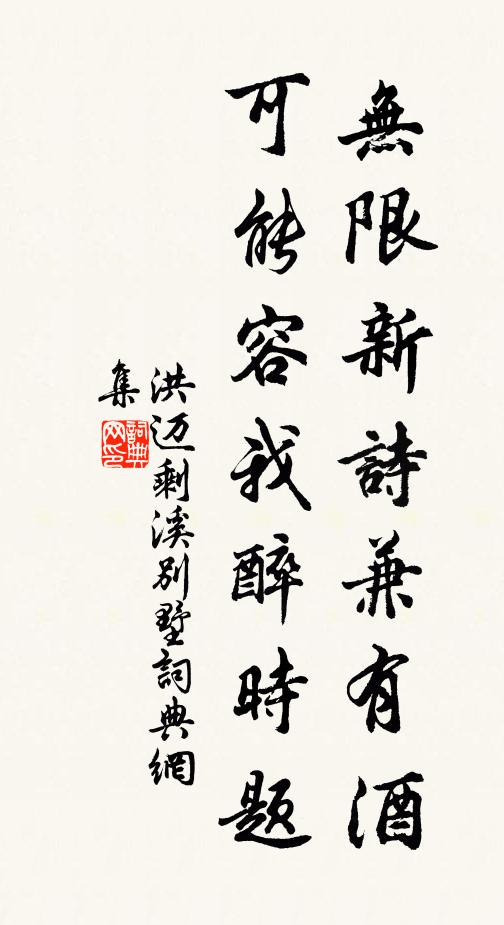 無限新詩兼有酒
可能容我醉時題
洪迈剩溪別墅詞典網
集
詞典网印